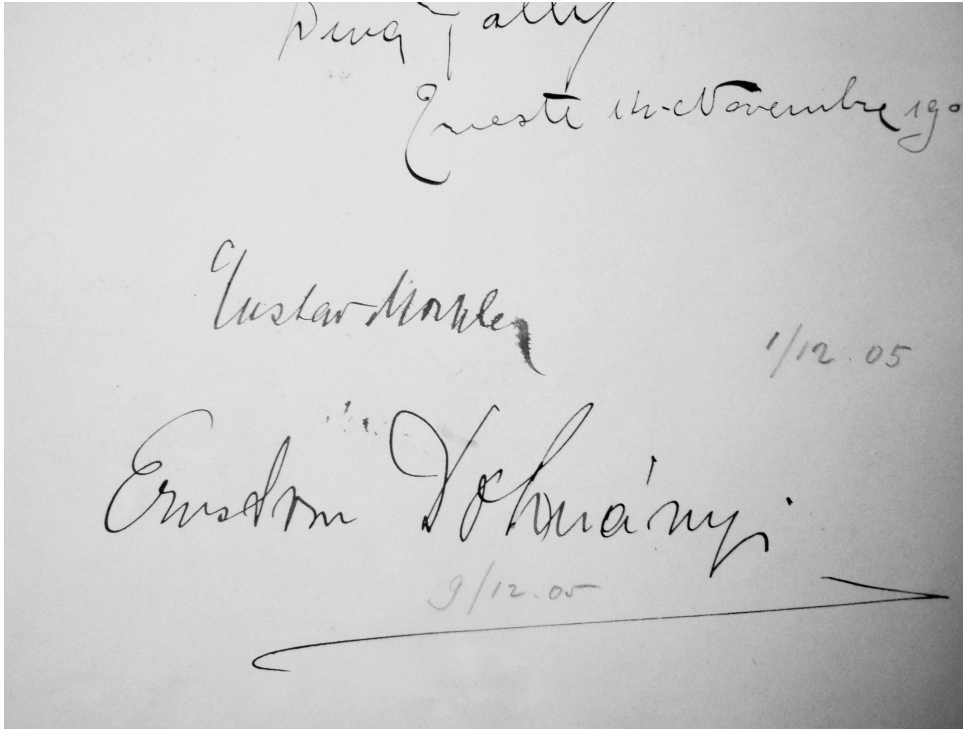 Dina Galli
Trieste 14 Novembre 190
Gustav Mahler
1/12.05
Ernst von Dohnányi
9/12.05